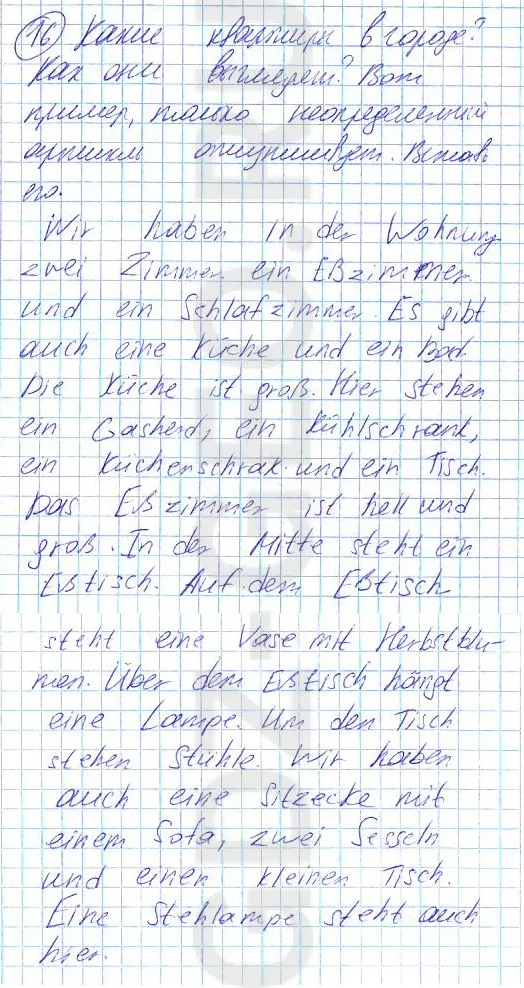 16) Какие квартиры в городе?
Как они выглядят? Вот
пример, только неопределенный
артикль отсутствует. Вставь
его.
Wir haben in der Wohnung
zwei Zimmer ein Eßzimmer
und ein Schlafzimmer. Es gibt
auch eine Küche und ein Bad.
Die Küche ist groß. Hier stehen
ein Gasherd, ein Kühlschrank,
ein Küchenschrak und ein Tisch.
Das Eßzimmer ist hell und
groß. In der Mitte steht ein
Eßtisch. Auf dem Eßtisch
steht eine Vase mit Herbstblu-
men. Über dem Eßtisch hängt
eine Lampe. Um den Tisch
stehen Stühle. Wir haben
auch eine Sitzecke mit
einem Sofa, zwei Sesseln
und einen kleinen Tisch.
Eine Stehlampe steht auch
hier.
GDZ-GICO.RU